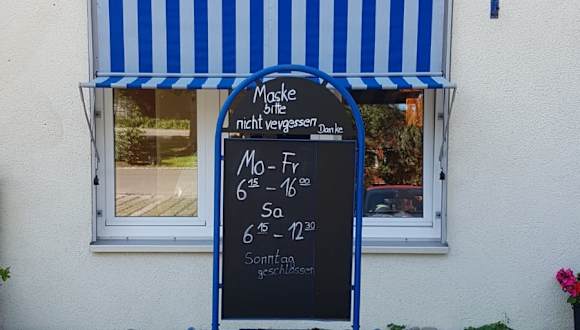 Maske
bitte
nicht vergessen
Danke
Mo - Fr
6 15 - 16 00
Sa
6 15 - 12 30
Sonntag
geschlossen